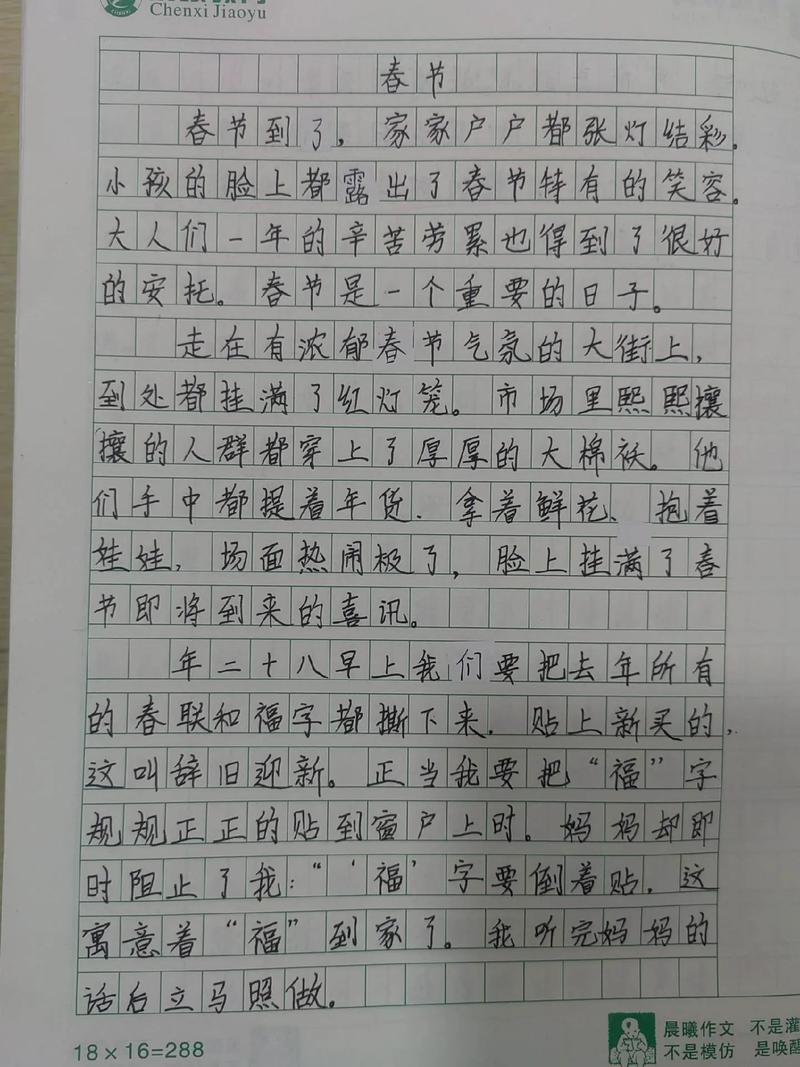 Chenxi Jiaoyu
春节
春节到了，家家户户都张灯结彩。
小孩的脸上都露出了春节特有的笑容。
大人们一年的辛苦劳累也得到了很好
的安托。春节是一个重要的日子。
走在有浓郁春节气氛的大街上，
到处都挂满了红灯笼。市场里熙熙攘
攘的人群都穿上了厚厚的大棉袄。他
们手中都提着年货、拿着鲜花、抱着
娃娃，场面热闹极了，脸上挂满了春
节即将到来的喜讯。
年二十八早上我们要把去年所有
的春联和福字都撕下来，贴上新买的，
这叫辞旧迎新。正当我要把“福”字
规规正正的贴到窗户上时。妈妈却即
时阻止了我：“‘福’字要倒着贴，这
寓意着“福”到家了。我听完妈妈的
话后立马照做。
18×16=288
晨曦作文 不是灌
不是模仿 是唤醒